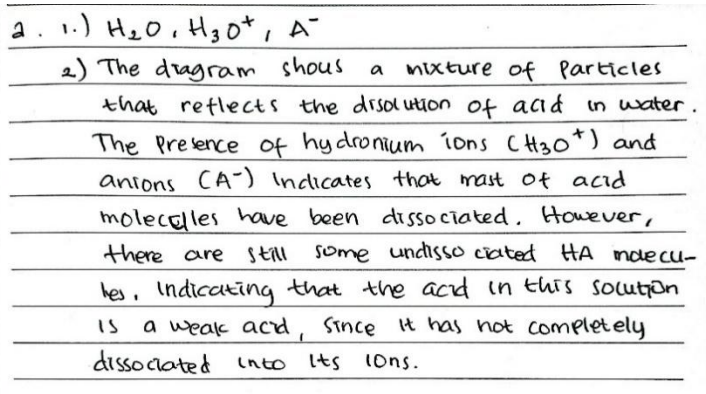 2. 1.) H₂O, H₃O⁺, A⁻
2) The diagram shows a mixture of particles
that reflects the disolution of acid in water.
The Presence of hydronium ions (H₃O⁺) and
anions (A⁻) Indicates that mast of acid
molecules have been dissociated. However,
there are still some undissociated HA molecu-
les, Indicating that the acid in this solution
is a weak acid, since it has not completely
dissociated into its ions.